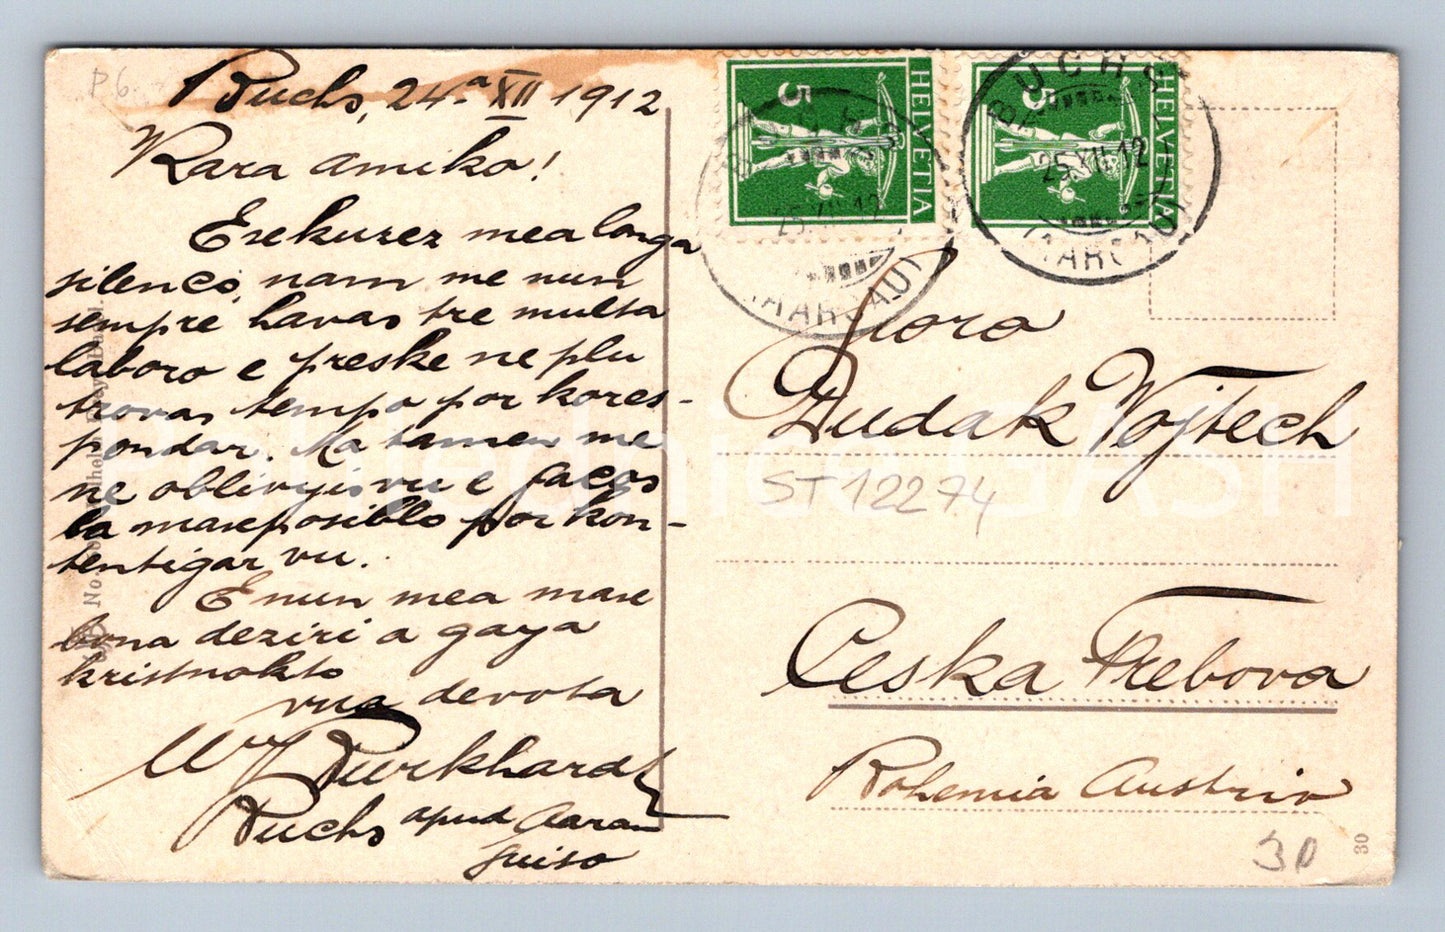 P6
Buchs, 24.a XII 1912
Kara amiko!
Exkuzez mea longa
silenco, nam me nun
sempre havas tre multa
laboro e preske ne plu
trovas tempo por kores-
pondar. Ma tamen me
ne oblivyis vu e facos
la maxposiblo por kon-
tentigar vu.
E nun mea maxe
bona deziri a gaya
kristnokto
vua devota
Burkhardt
Buchs apud Aarau
Suiso
HELVETIA
5
HELVETIA
5
BUCHS
25.XII.12
(AARGAU)
BUCHS
25.XII.12
(AARGAU)
Sioro
Dudak Vojtech
ST12274
Ceska Trebova
Bohemia Austrio
30
30